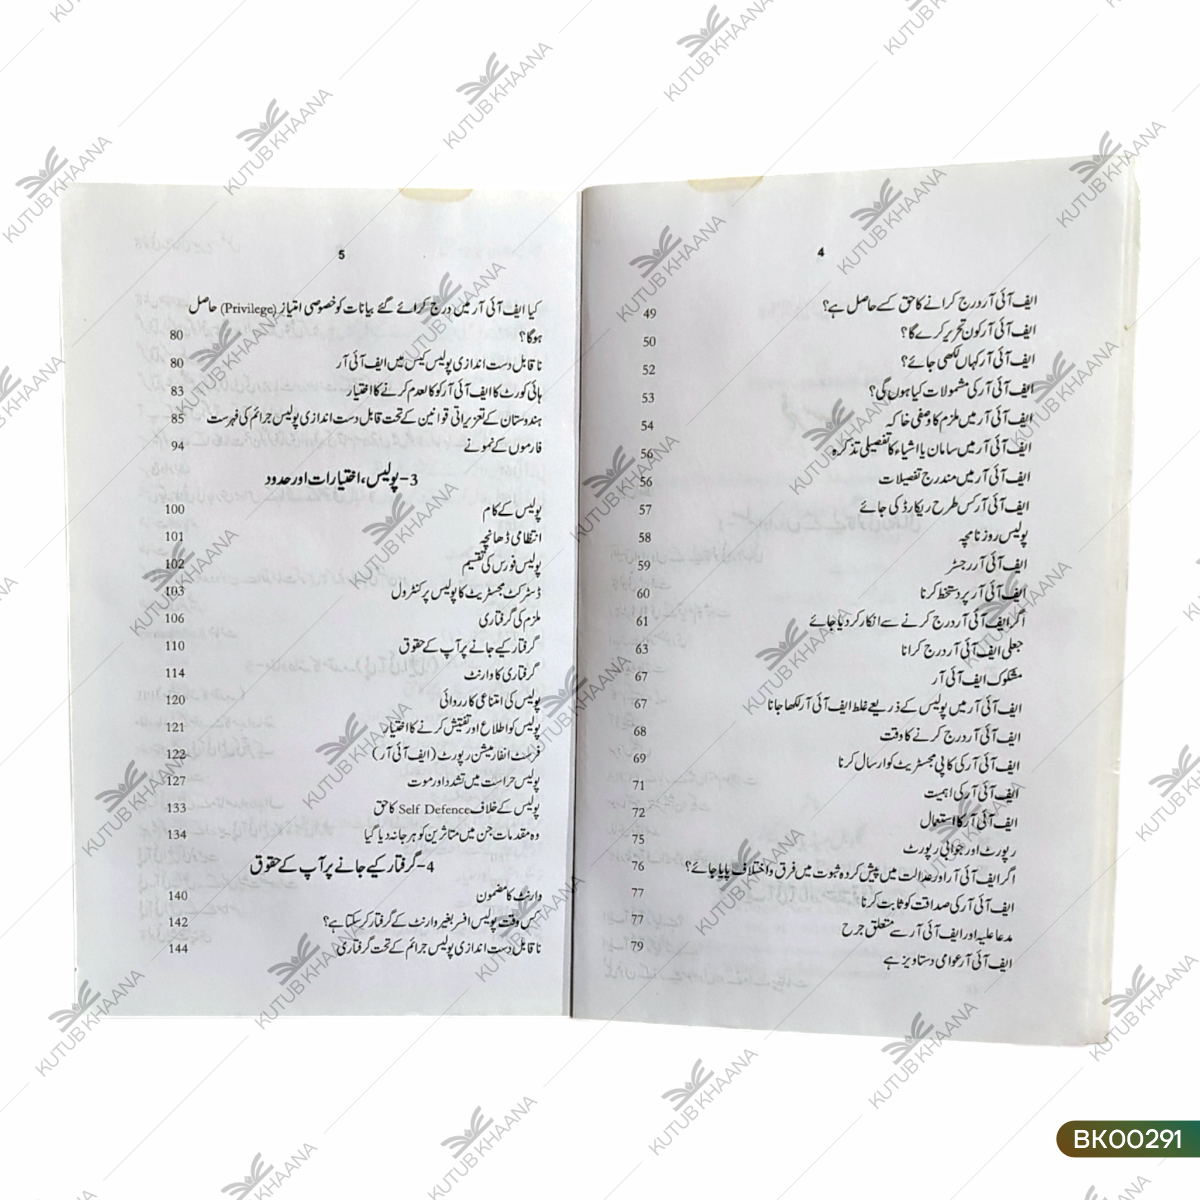 4
ایف آئی آر درج کرانے کا حق کسے حاصل ہے؟ 49
ایف آئی آر کون تحریر کرے گا؟ 50
ایف آئی آر کہاں لکھی جائے؟ 52
ایف آئی آر کی مشمولات کیا ہوں گی؟ 53
ایف آئی آر میں ملزم کا وصفی خاکہ 54
ایف آئی آر میں سامان یا اشیاء کا تفصیلی تذکرہ 56
ایف آئی آر میں مندرج تفصیلات 56
ایف آئی آر کس طرح ریکارڈ کی جائے 57
پولیس روزنامچہ 58
ایف آئی آر رجسٹر 59
ایف آئی آر پر دستخط کرنا 60
اگر ایف آئی آر درج کرنے سے انکار کر دیا جائے 61
جعلی ایف آئی آر درج کرانا 63
مشکوک ایف آئی آر 67
ایف آئی آر میں پولیس کے ذریعے غلط ایف آئی آر لکھا جانا 67
ایف آئی آر درج کرنے کا وقت 68
ایف آئی آر کی کاپی مجسٹریٹ کو ارسال کرنا 69
ایف آئی آر کی اہمیت 71
ایف آئی آر کا استعمال 72
رپورٹ اور جوابی رپورٹ 75
اگر ایف آئی آر اور عدالت میں پیش کردہ ثبوت میں فرق و اختلاف پایا جائے؟ 76
ایف آئی آر کی صداقت کو ثابت کرنا 77
مدعا علیہ اور ایف آئی آر سے متعلق جرح 77
ایف آئی آر عوامی دستاویز ہے 79
5
کیا ایف آئی آر میں درج کرائے گئے بیانات کو خصوصی امتیاز (Privilege) حاصل
ہوگا؟ 80
ناقابل دست اندازی پولیس کیس میں ایف آئی آر 80
ہائی کورٹ کا ایف آئی آر کو کالعدم کرنے کا اختیار 83
ہندوستان کے تعزیراتی قوانین کے تحت قابل دست اندازی پولیس جرائم کی فہرست 85
فارموں کے نمونے 94
3- پولیس، اختیارات اور حدود
پولیس کے کام 100
انتظامی ڈھانچہ 101
پولیس فورس کی تقسیم 102
ڈسٹرکٹ مجسٹریٹ کا پولیس پر کنٹرول 103
ملزم کی گرفتاری 106
گرفتار کیے جانے پر آپ کے حقوق 110
گرفتاری کا وارنٹ 114
پولیس کی امتناعی کارروائی 120
پولیس کو اطلاع اور تفتیش کرنے کا اختیار 121
فرسٹ انفارمیشن رپورٹ (ایف آئی آر) 122
پولیس حراست میں تشدد اور موت 127
پولیس کے خلاف Self Defence کا حق 133
وہ مقدمات جن میں متاثرین کو ہرجانہ دیا گیا 134
4- گرفتار کیے جانے پر آپ کے حقوق
وارنٹ کا مضمون 140
کس وقت پولیس افسر بغیر وارنٹ کے گرفتار کر سکتا ہے؟ 142
ناقابل دست اندازی پولیس جرائم کے تحت گرفتاری 144
KUTUB KHAANA
BK00291